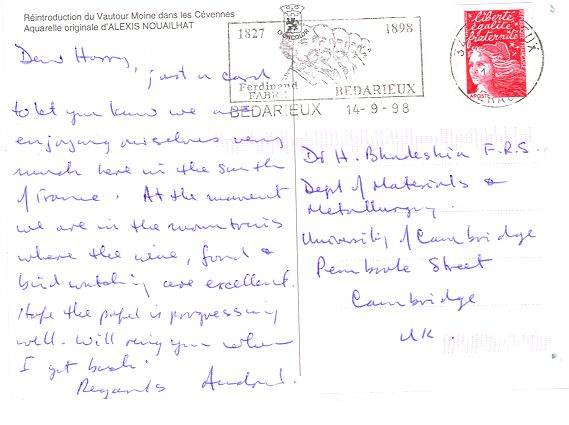 Réintroduction du Vautour Moine dans les Cévennes
Aquarelle originale d'ALEXIS NOUAILHAT
Dear Harry,
just a card
to let you know we are
enjoying ourselves very
much here in the south
of France. At the moment
we are in the mountains
where the wine, food &
bird watching are excellent.
Hope the paper is progressing
well. Will ring you when
I get back.
Regards
1827
1898
Ferdinand
FABRE
BEDARIEUX
BEDARIEUX 14-9-98
liberté
égalité
fraternité
LA POSTE
Dr H. Bhadeshia F.R.S.
Dept of Materials &
Metallurgy
University of Cambridge
Pembroke Street
Cambridge
UK